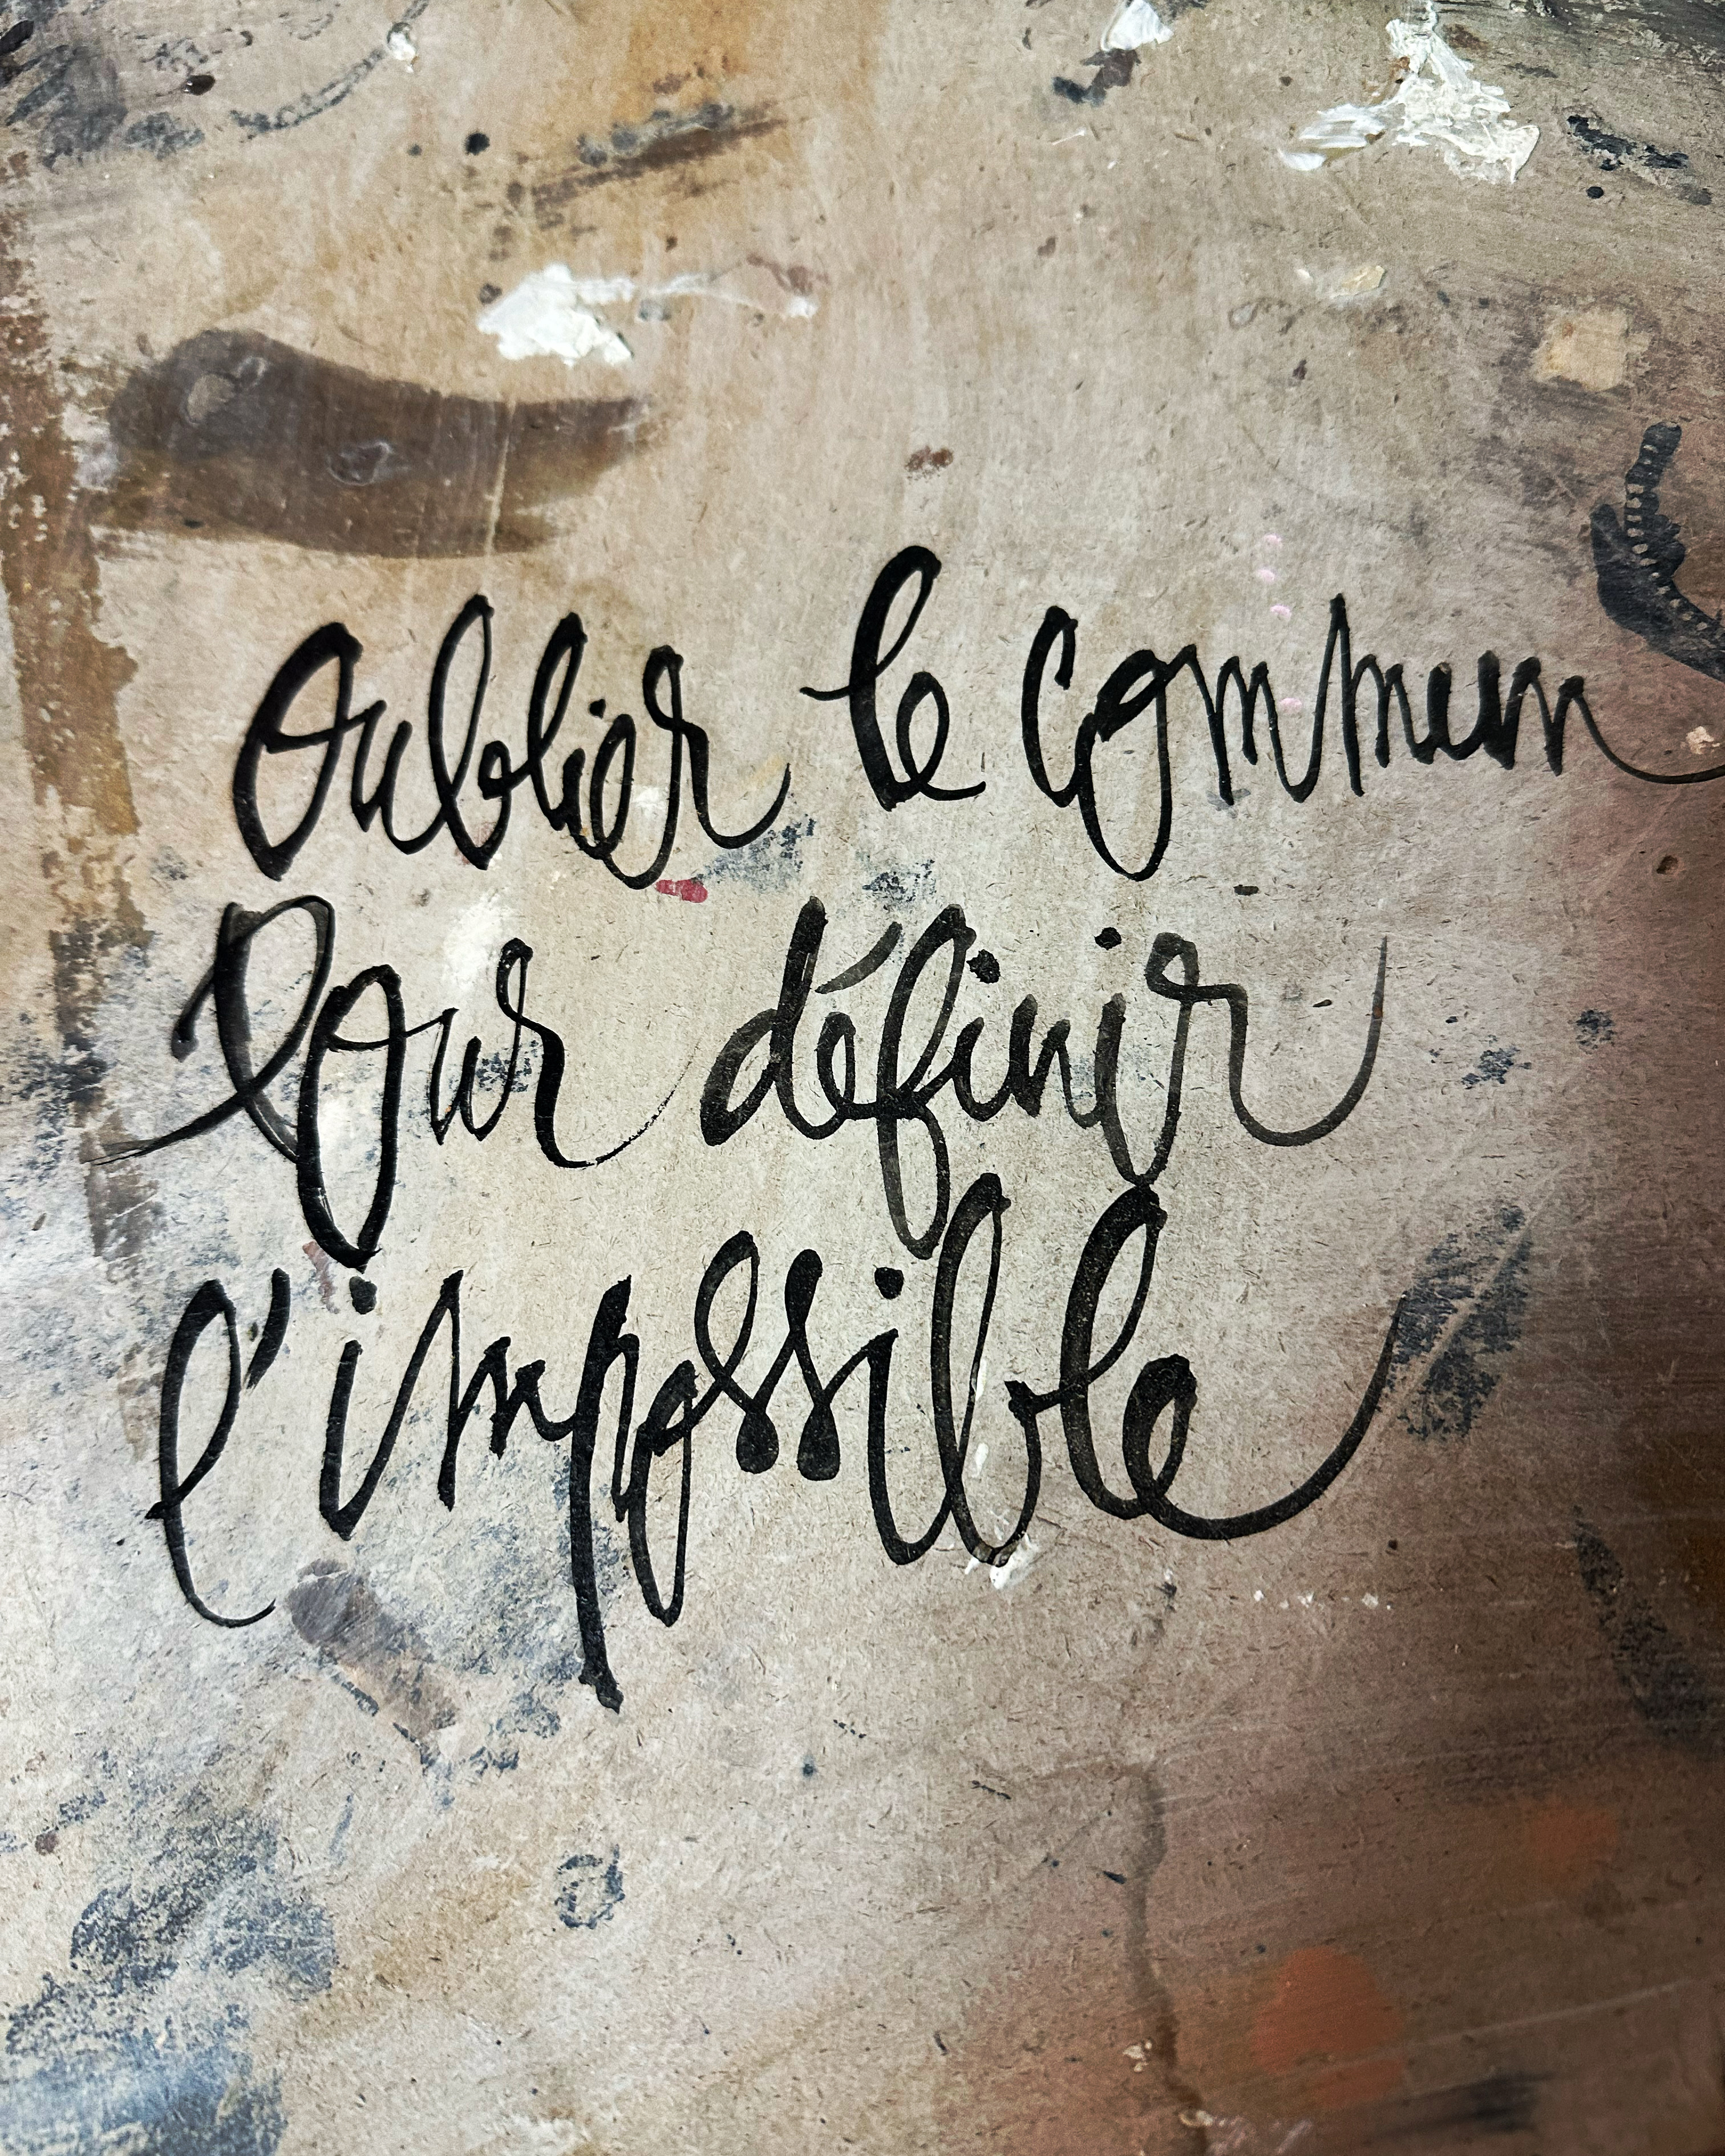 Oublier le commun
Pour définir
l'impossible